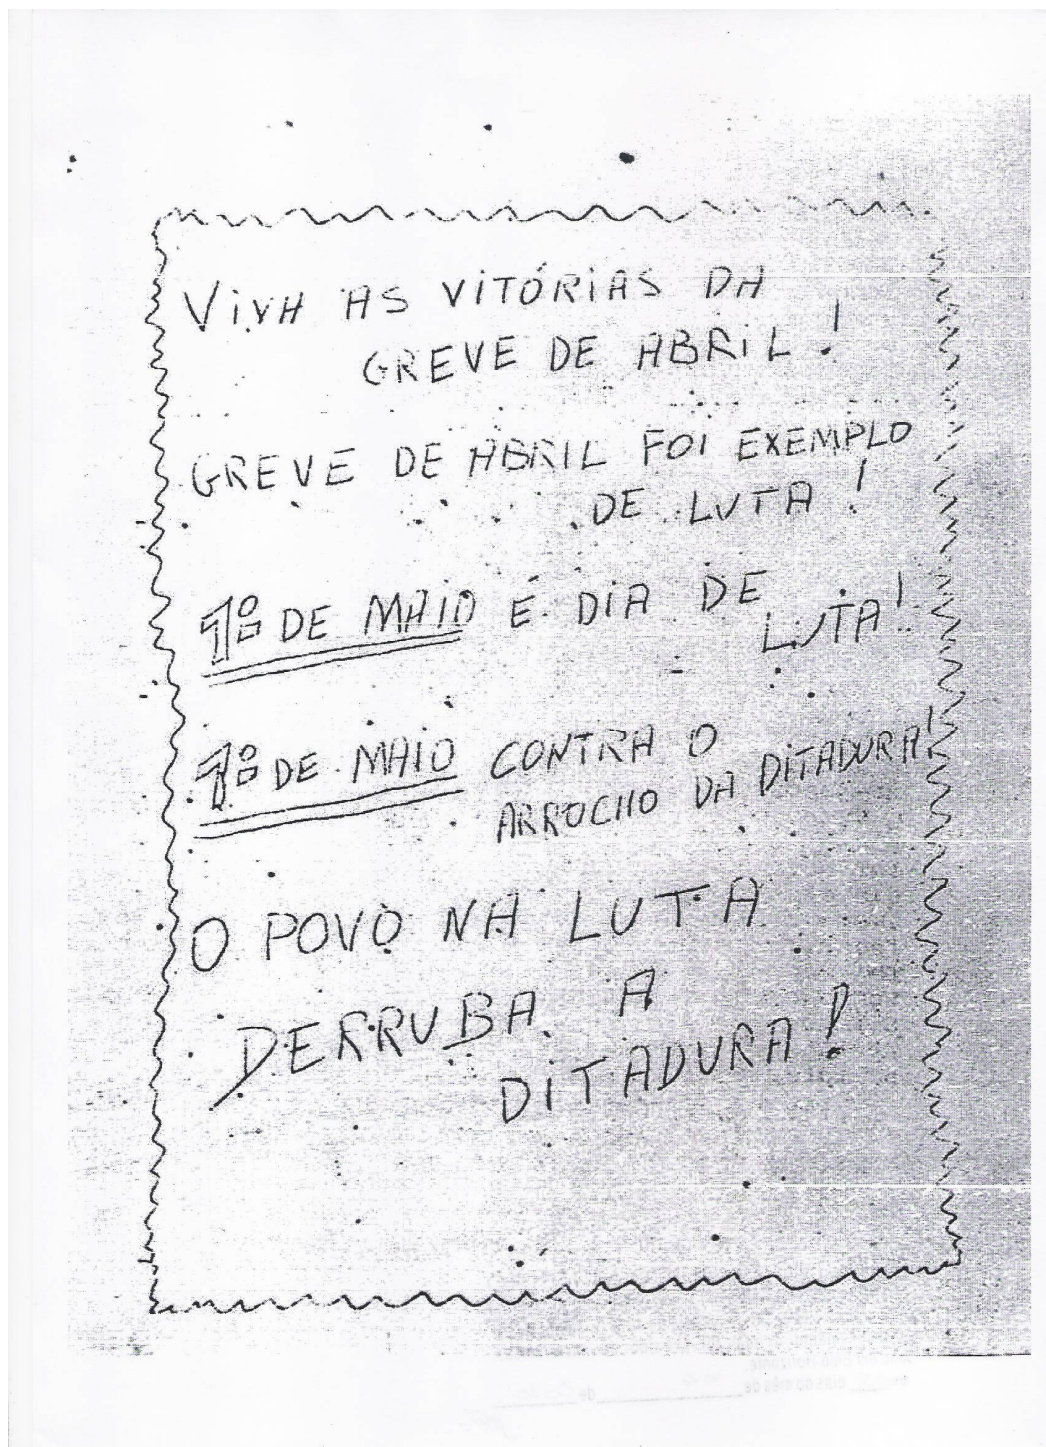 VIVA AS VITÓRIAS DA
GREVE DE ABRIL!
GREVE DE ABRIL FOI EXEMPLO
DE LUTA!
1º DE MAIO É DIA DE
LUTA!
1º DE MAIO CONTRA O
ARROCHO DA DITADURA!
O POVO NA LUTA
DERRUBA A
DITADURA!